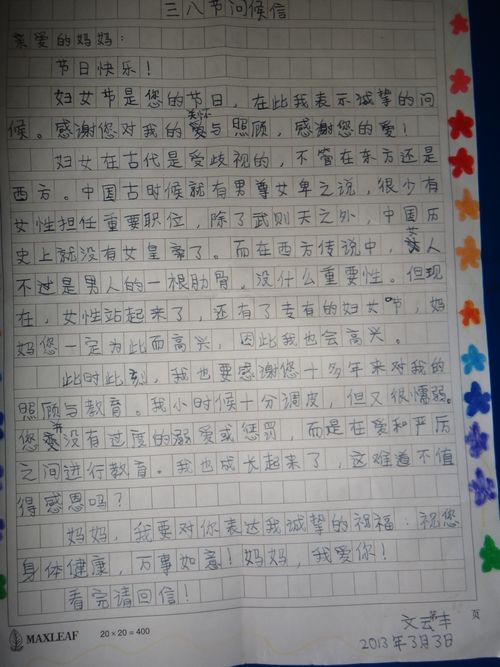 三八节问候信
亲爱的妈妈：
节日快乐！
妇女节是您的节日，在此我表示诚挚的问
候。感谢您对我的关怀与照顾，感谢您的爱！
妇女在古代是受歧视的，不管在东方还是
西方。中国古时候就有男尊女卑之说，很少有
女性担任重要职位，除了武则天之外，中国历
史上就没有女皇帝了。而在西方传说中，女人
不过是男人的一根肋骨，没什么重要性。但现
在，女性站起来了，还有了专有的妇女节，妈
妈您一定为此而高兴，因此我也会高兴。
此时此刻，我也要感谢您十多年来对我的
照顾与教育。我小时候十分调皮，但又很懦弱。
您并没有过度的溺爱或惩罚，而是在爱和严厉
之间进行教育。我也成长起来了，这难道不值
得感恩吗？
妈妈，我要对你表达我诚挚的祝福：祝您
身体健康，万事如意！妈妈，我爱你！
看完请回信！
MAXLEAF 20×20=400 页
2013年3月3日